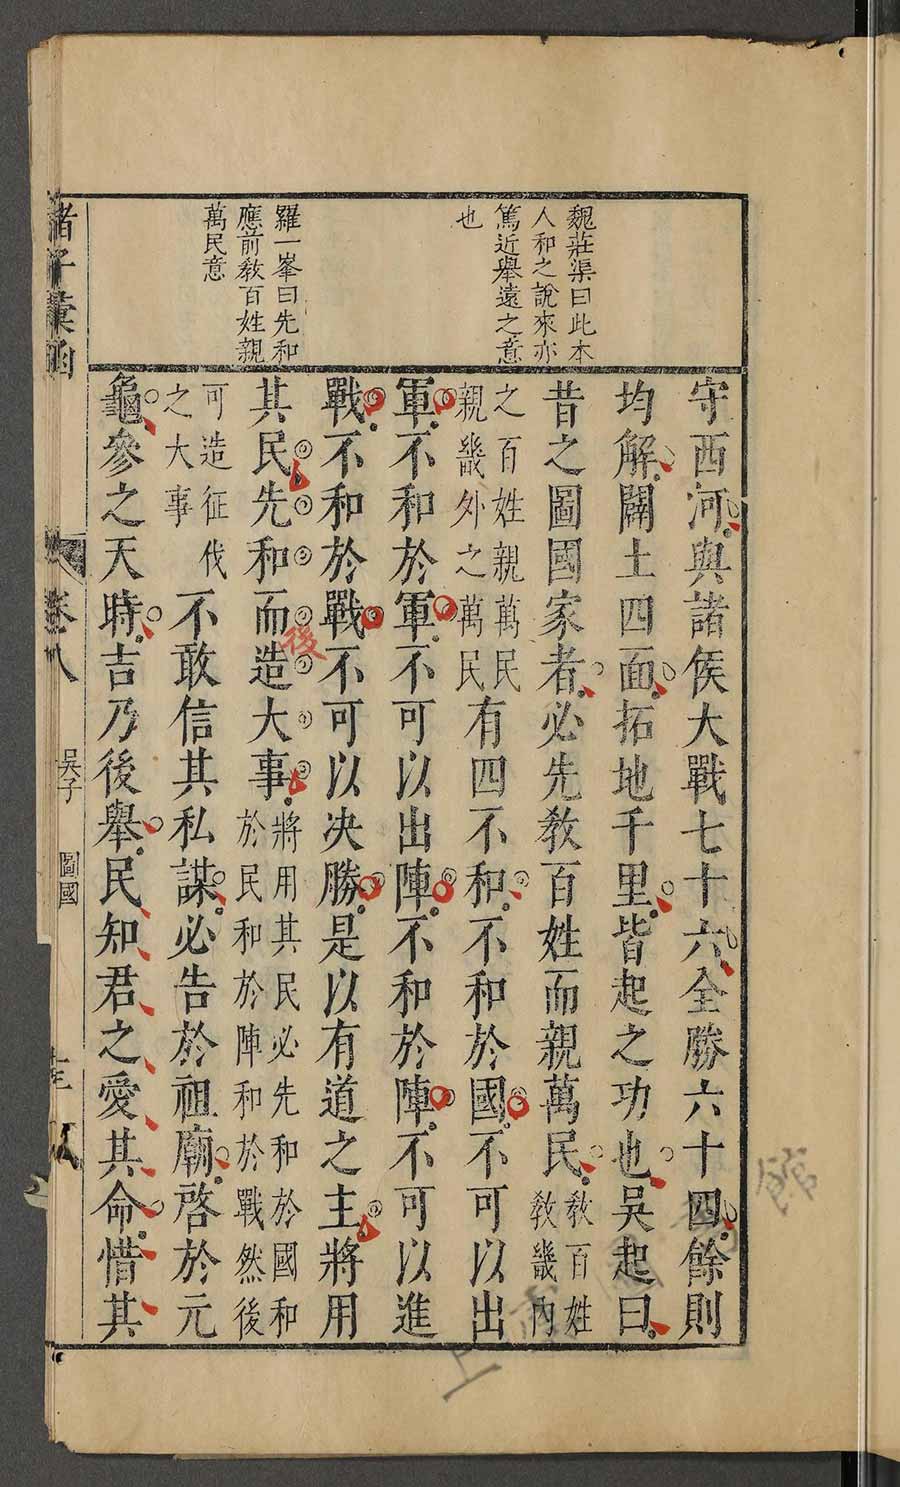 魏莊渠曰此本
人和之說來亦
篤近舉遠之意
也
羅一峯曰先和
應前敎百姓親
萬民意
守西河與諸侯大戰七十六全勝六十四餘則
均解闢土四面拓地千里皆起之功也吳起曰
昔之圖國家者必先敎百姓而親萬民
敎百姓
敎畿內
之百姓親萬民
親畿外之萬民
有四不和不和於國不可以出
軍不和於軍不可以出陣不和於陣不可以進
戰不和於戰不可以决勝是以有道之主將用
其民先和而造大事
後
將用其民必先和於國和
於民和於陣和於戰然後
可造征伐
之大事
不敢信其私謀必告於祖廟啓於元
龜參之天時吉乃後舉民知君之愛其命惜其
諸子彙函
卷八
吳子
圖國
上